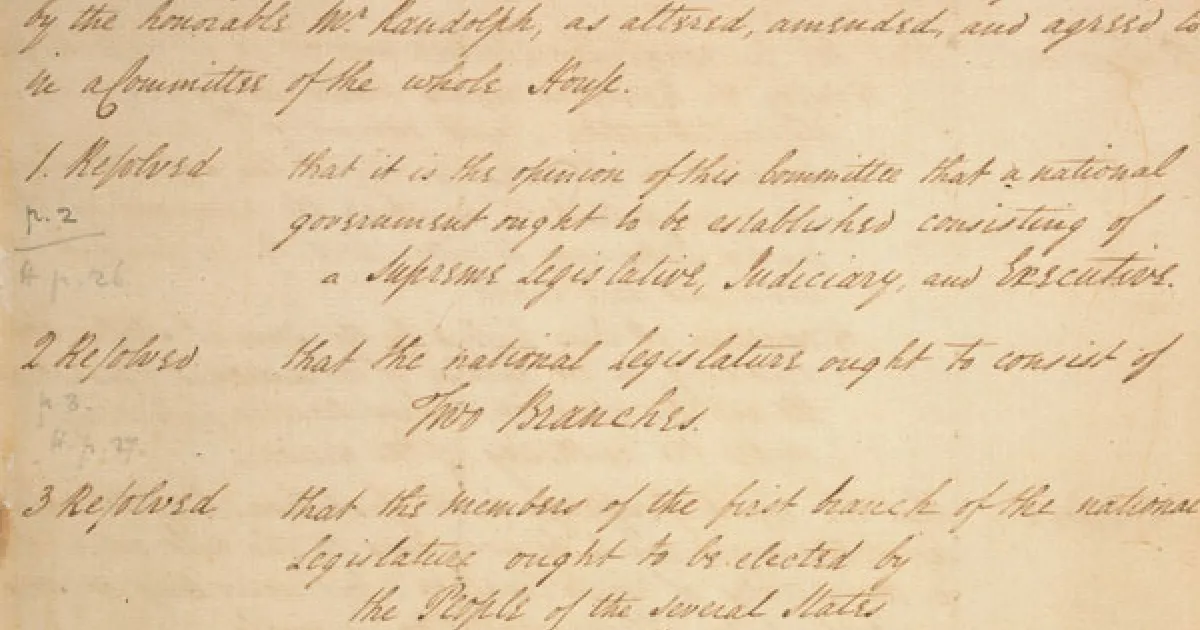 by the honorable Mr. Randolph, as altered, amended, and agreed to
in a Committee of the whole House.
1. Resolved that it is the opinion of this Committee that a national
p. 2
government ought to be established consisting of
H p. 26
a Supreme Legislative, Judiciary, and Executive.
2 Resolved that the national Legislature ought to consist of
p 3.
Two Branches.
H. p. 27.
3 Resolved that the members of the first branch of the national
Legislature ought to be elected by
the People of the several States